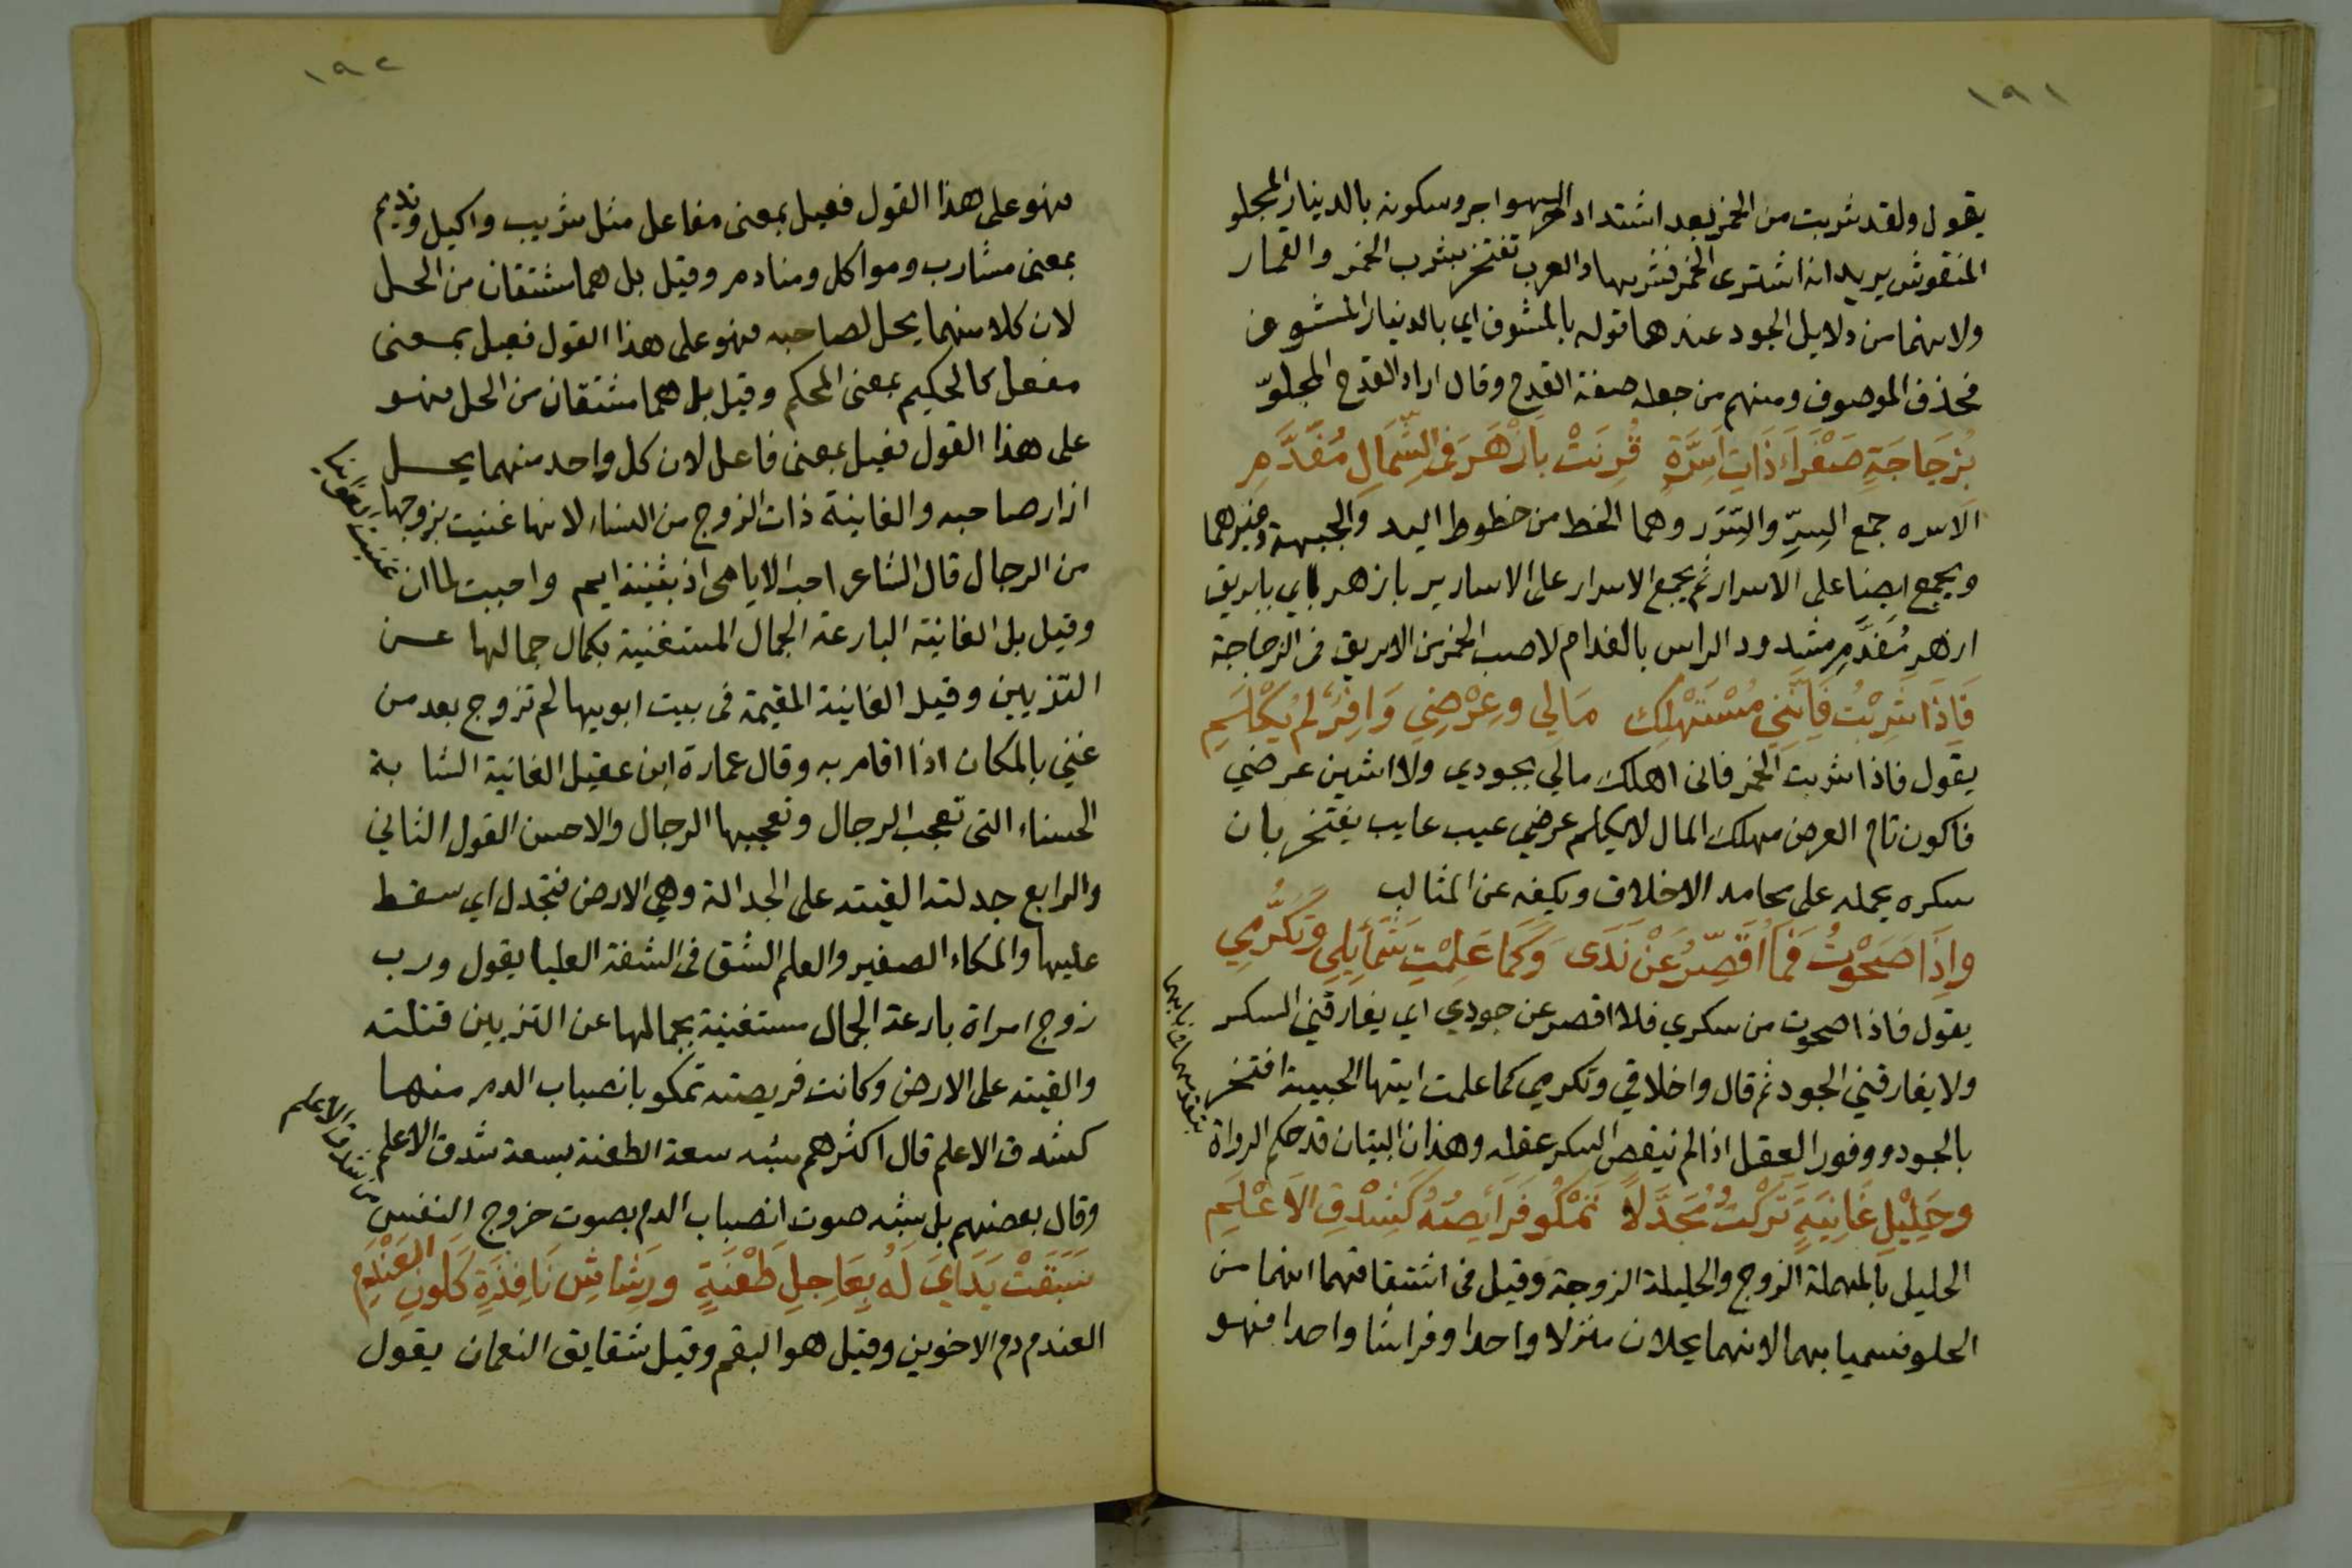 ١٩١
يقول ولقد شربت من الخمر بعد اشتداد حر الهواجر وسكونه بالدينار المجلو
المنقوش يريد انه اشترى الخمر فشربها والعرب تفتخر بشرب الخمر والقمار
ولانهما من دلايل الجود عندها قوله بالمشوف اي بالدينار المشوف
فحذف الموصوف ومنهم من جعله صفة القدح وقال اراد القدح المجلوّ
بِزُجَاجَةٍ صَفْرَاءَ ذَاتِ اَسِرَّةٍ قُرِنَتْ بِاَزْهَرَ فِي الشِّمَالِ مُفَدَّمِ
الاسره جمع السِرّ والسِرَر وهما الخط من خطوط اليد والجبهة وغيرهما
ويجمع ايضا على الاسرار ثم يجمع الاسرار على الاسارير بازهر اي بابريق
ازهر مُفَدَّمِ مشدود الراس بالفدام لاصب الخمر من الابريق في الزجاجة
فَاِذَا شَرِبْتُ فَاِنَّنِي مُسْتَهْلِك مَالي وعِرْضِي وَافِرٌ لم يُكْلَمِ
يقول فاذا شربت الخمر فاني اهلك مالي بجودي ولا اشين عرضي
فاكون تام العرض مهلك المال لا يكلم عرضي عيب عايب يفتخر بان
سكره يحمله على محامد الاخلاق ويكفه عن المثالب
واِذَا صَحَوْتُ فَمَا اُقَصِّرُ عَنْ نَدَى وَكَمَا عَلِمْتِ شَمَايِلِي وَتَكَرُّمِي
يقول فاذا صحوت من سكري فلا اقصر عن جودي اي يفارقني السكر
ولا يفارقني الجود ثم قال واخلاقي وتكرمي كما علمت ايتها الحبيبة افتخر
بالجود ووفور العقل اذا لم ينقص السكر عقله وهذان البيتان قد حكم الرواة
بتقدمهما في بابهما
وحَلِيْلِ غَانِيَةٍ تَرَكْتُ مُجَدَّلاً تَمْكُو فَرَايِصُهُ كَشِدْقِ الاَعْلَمِ
الحليل بالمهملة الزوج والحليلة الزوجة وقيل في اشتقاقهما انهما من
الحلو فسميا بهما لانهما يحلان منزلا واحدا وفراشا واحدا فهو
١٩٢
فهو على هذا القول فعيل بمعنى مفاعل مثل شريب واكيل ونديم
بمعنى مشارب ومواكل ومنادم وقيل بل هما مشتقان من الحل
لان كلا منهما يحل لصاحبه فهو على هذا القول فعيل بمعنى
مفعل كالحكيم بمعنى المحكم وقيل بل هما مشتقان من الحل فهو
على هذا القول فعيل بمعنى فاعل لان كل واحد منهما يحل
ازار صاحبه والغانية ذات الزوج من النساء لانها غنيت بزوجها
من الرجال قال الشاعر احب الايامى اذ بثينة ايم واحببت لما ان
غنيت الغوانيا
وقيل بل الغانية البارعة الجمال المستغنية بكمال جمالها عن
التزيين وقيل الغانية المقيمة في بيت ابويها لم تزوج بعد من
غني بالمكان اذا اقام به وقال عمارة ابن عقيل الغانية الشابة
الحسناء التي تعجب الرجال وتعجبها الرجال والاحسن القول الثاني
والرابع جدلته القيته على الجدالة وهي الارض فتجدل اي سقط
عليها والمكاء الصفير والعلم الشق في الشفة العليا يقول ورب
زوج امراة بارعة الجمال مستغنية بجمالها عن التزيين قتلته
والقيته على الارض وكانت فريصته تمكو بانصباب الدم منها
كشدق الاعلم قال اكثرهم شبه سعة الطعنة بسعة شدق الاعلم
وقال بعضهم بل شبه صوت انصباب الدم بصوت خروج النفس
من شدق الاعلم
سَبَقَتْ يَدَايَ لَهُ بِعَاجِلِ طَعْنَةٍ ورَشَاشِ نَافِذَةٍ كَلَونِ العَنْدَمِ
العندم دم الاخوين وقيل هو البقم وقيل شقايق النعمان يقول